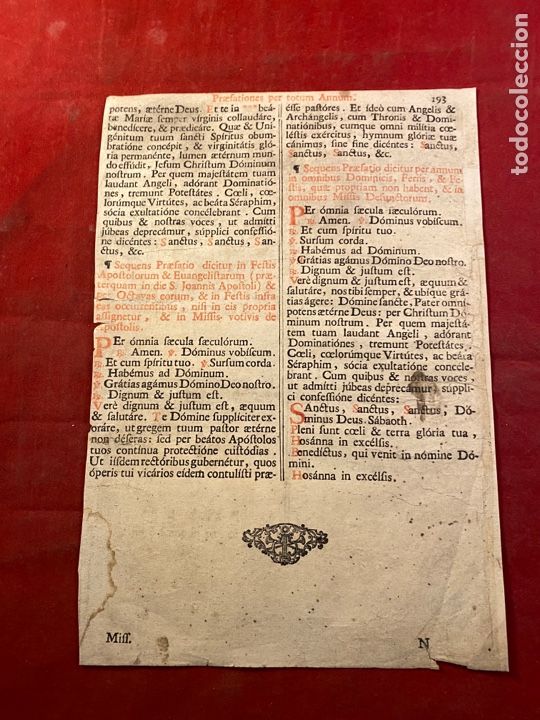 Præfationes per totum Annum. 193
potens, ætérne Deus. Et te in *** beá-
tæ Mariæ semper vírginis collaudáre,
benedícere, & prædicáre. Quæ & Uni-
génitum tuum sancti Spíritus obum-
bratióne concépit, & virginitátis glória
permanénte, lumen ætérnum mun-
do effúdit, Jesum Christum Dóminum
nostrum. Per quem majestátem tuam
laudant Angeli, adórant Dominatió-
nes, tremunt Potestátes. Cœli, cœ-
lorúmque Virtútes, ac beáta Séraphim,
sócia exultatióne concélebrant. Cum
quibus & nostras voces, ut admítti
júbeas deprecámur, súpplici confessió-
ne dicéntes: Sanctus, Sanctus, San-
ctus, &c.
¶ Sequens Præfatio dicitur in Festis
Apostolorum & Euangelistarum (præ-
terquam in die S. Joannis Apostoli) &
per Octavas eorum, & in Festis infra
occurrentibus, nisi in eis propria
assignetur, & in Missis votivis de
postolis.
PEr ómnia sæcula sæculórum.
℟. Amen. ℣. Dóminus vobiscum.
Et cum spíritu tuo. ℣. Sursum corda.
Habémus ad Dóminum.
℣. Grátias agámus Dómino Deo nostro.
Dignum & justum est.
Verè dignum & justum est, æquum
& salutáre. Te Dómine supplíciter ex-
oráre, ut gregem tuum pastor ætérne
non déseras: sed per beátos Apóstolos
tuos contínua protectióne custódias.
Ut iisdem rectóribus gubernétur, quos
óperis tui vicários eídem contulísti præ-
esse pastóres. Et ídeò cum Angelis &
Archángelis, cum Thronis & Domi-
natiónibus, cumque omni milítia cœ-
léstis exércitus, hymnum glóriæ tuæ
cánimus, sine fine dicéntes: Sanctus,
Sanctus, Sanctus, &c.
¶ Sequens Præfatio dicitur per annum
in omnibus Dominicis, Feriis, & Fe-
stis, quæ propriam non habent, & in
omnibus Missis Defunctorum.
PEr ómnia sæcula sæculórum.
℟. Amen. ℣. Dóminus vobíscum.
℟. Et cum spíritu tuo.
℣. Sursum corda.
℟. Habémus ad Dóminum.
℣. Grátias agámus Dómino Deo nostro.
℟. Dignum & justum est.
Verè dignum & justum est, æquum &
salutáre, nos tibi semper, & ubíque grá-
tias ágere: Dómine sancte, Pater omní-
potens ætérne Deus: per Christum Dó-
minum nostrum. Per quem majestá-
tem tuam laudant Angeli, adórant
Dominatiónes, tremunt Potestátes.
Cœli, cœlorúmque Virtútes, ac beáta
Séraphim, sócia exultatióne concéle-
brant. Cum quibus & nostras voces,
ut admítti júbeas deprecámur, súppli-
ci confessióne dicéntes:
SAnctus, Sanctus, Sanctus, Dó-
minus Deus Sábaoth.
Pleni sunt cœli & terra glória tua,
Hosánna in excélsis.
Benedíctus, qui venit in nómine Dó-
mini.
Hosánna in excélsis.
Miss. N
todocoleccion